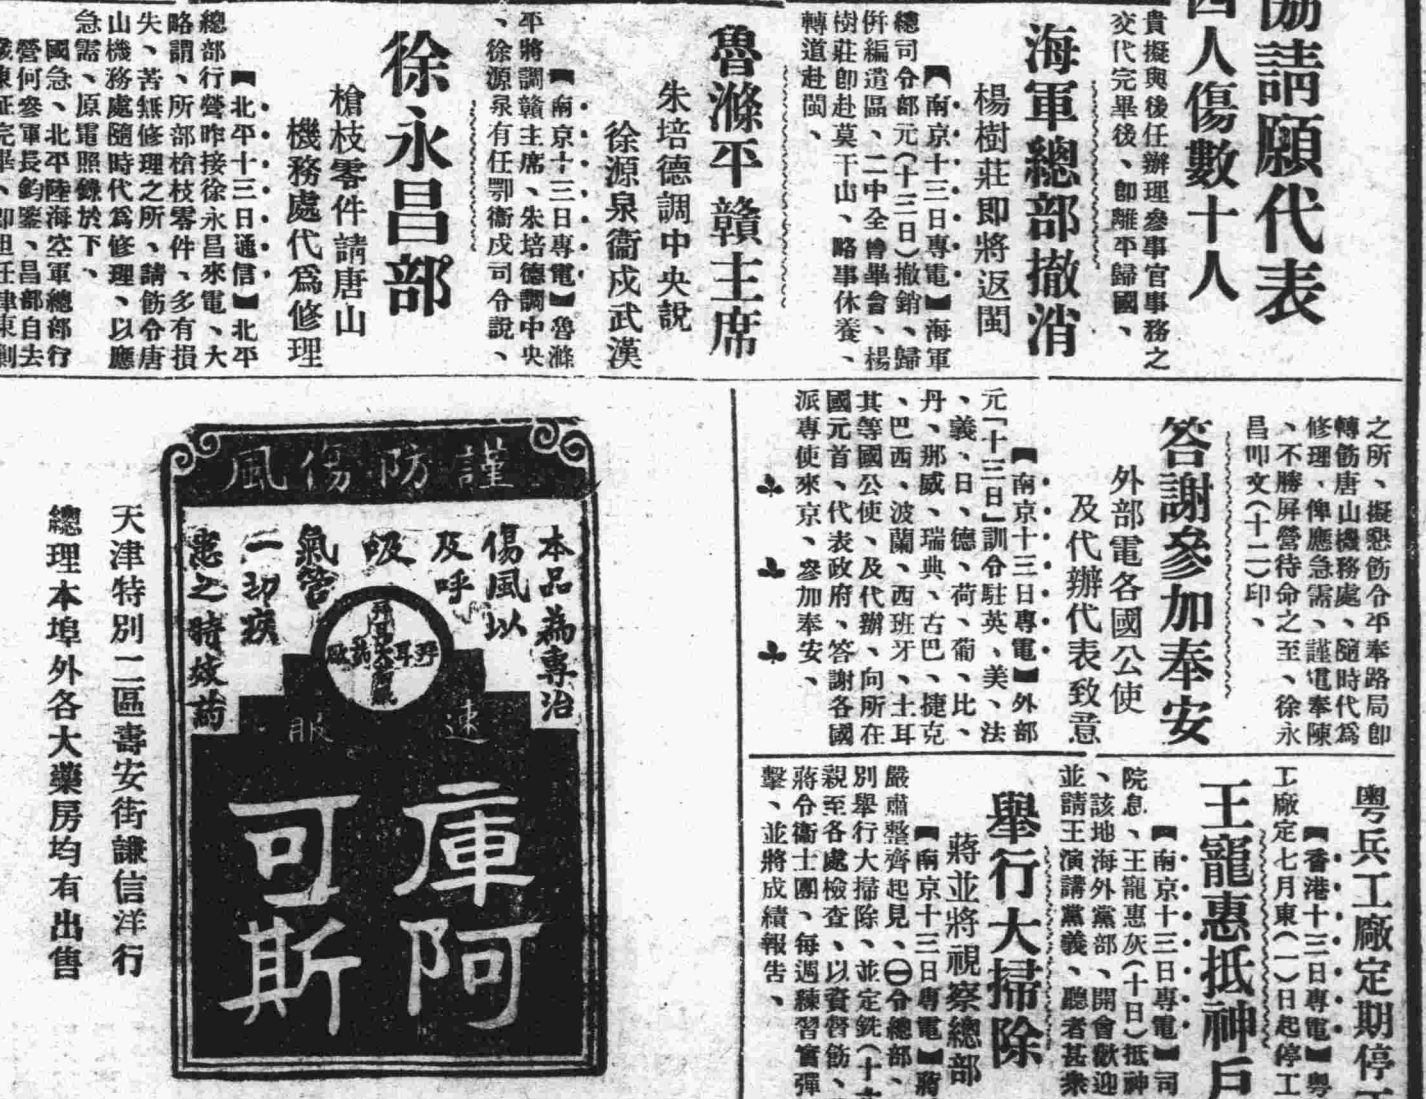 協請願代表
四人傷數十人
貴擬與後任辦理參事官事務之
交代完畢後、卽離平歸國、
海軍總部撤消
楊樹莊即將返閩
【南京十三日專電】海軍
總司令部元(十三日)撤銷、歸
倂編遣區、二中全會畢會、楊
樹莊卽赴莫干山、略事休養、
轉道赴閩、
魯滌平贛主席
朱培德調中央說
徐源泉衞戍武漢
【南京十三日專電】魯滌
平將調贛主席、朱培德調中央
、徐源泉有任鄂衞戍司令說、
徐永昌部
槍枝零件請唐山
機務處代爲修理
【北平十三日通信】北平
總部行營昨接徐永昌來電、大
略謂、所部槍枝零件、多有損
失、苦無修理之所、請飭令唐
山機務處隨時代爲修理、以應
急需、原電照錄於下、
國急、北平陸海空軍總部行
營何參軍長鈞鑒、昌部自去
歲東征完畢、卽担任津東剿
之所、擬懇飭令平奉路局卽
轉飭唐山機務處、隨時代爲
修理、俾應急需、謹電奉陳
、不勝屏營待命之至、徐永
昌叩文(十二)印、
答謝參加奉安
外部電各國公使
及代辦代表致意
【南京十三日專電】外部
元「十三日」訓令駐英、美、法
、義、日、德、荷、葡、比、
丹、那威、瑞典、古巴、捷克
、巴西、波蘭、西班牙、土耳
其等國公使、及代辦、向所在
國元首、代表政府、答謝各國
派專使來京、參加奉安、
粵兵工廠定期停工
【香港十三日專電】粵
工廠定七月東(一)日起停工
王寵惠抵神戶
【南京十三日專電】司
院息、王寵惠灰(十日)抵神
、該地海外黨部、開會歡迎
並請王演講黨義、聽者甚衆
舉行大掃除
蔣並將視察總部
【南京十三日專電】蔣
嚴肅整齊起見、㊀令總部、
別舉行大掃除、並定銑(十六
親至各處檢查、以資督飭、
蔣令衞士團、每週練習實彈
擊、並將成績報告、
謹防傷風
本品為專治
傷風以
及呼
吸
氣管
一切疾
患之特效葯
拜耳大葯廠
速服
庫阿
可斯
天津特別二區壽安街謙信洋行
總理本埠外各大藥房均有出售